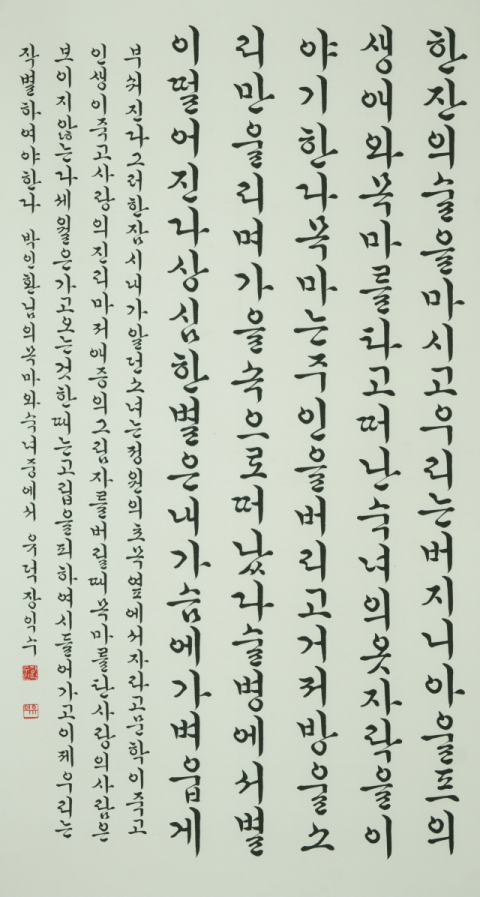 한잔의술을마시고우리는버지니아울프의
생애와목마를타고떠난숙녀의옷자락을이
야기한다목마는주인을버리고거저방울소
리만울리며가을속으로떠났다술병에서별
이떨어진다상심한별은내가슴에가벼웁게
부쉬진다그러한잠시내가알던소녀는정원의초목옆에서자라고문학이죽고
인생이죽고사랑의진리마저애증의그림자를버릴때목마를탄사랑의사람은
보이지않는다세월은가고오는것한때는고립을피하여시들어가고이제우리는
작별하여야한다 박인환님의목마와숙녀중에서 유덕장익수